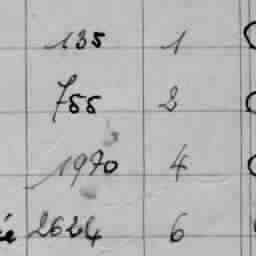 135 1
755 2
1970 4
2624 6